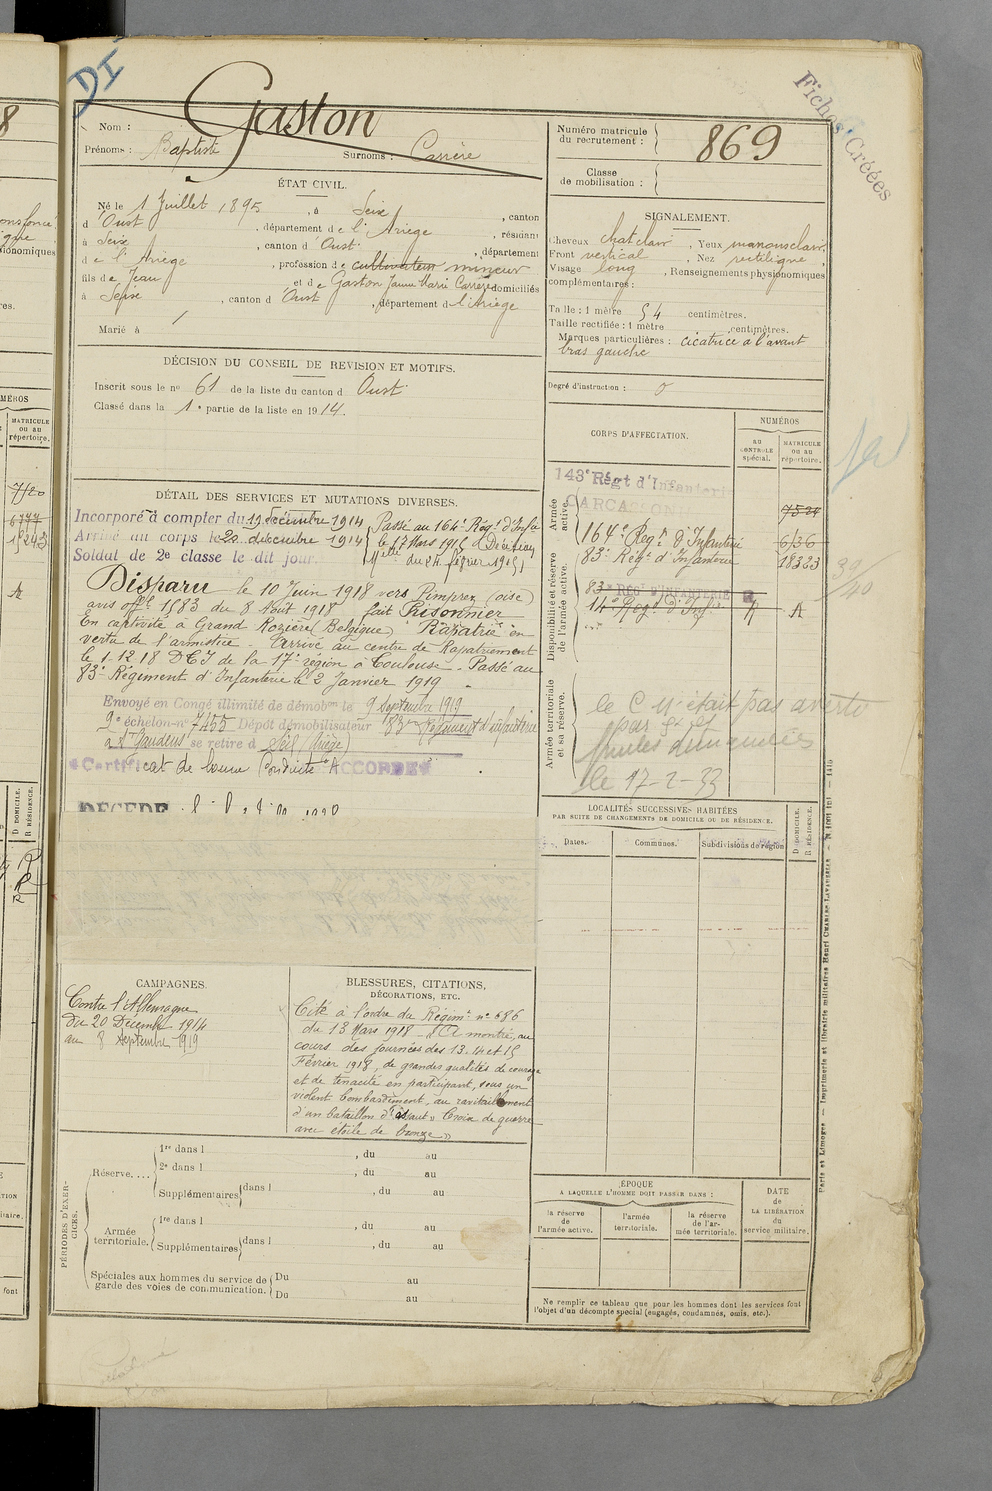 DI
Fiches Créées
Nom : Gaston
Prénoms : Baptiste Surnoms : Carrère
Numéro matricule du recrutement : 869
Classe de mobilisation :
ÉTAT CIVIL.
Né le 1 Juillet 1895, à Seix, canton
d'Oust, département de l'Ariège, résidant
à Seix, canton d'Oust, département
de l'Ariège, profession de cultivateur mineur
fils de Jean et de Gaston Jeanne Marie Carrère domiciliés
à Seix, canton d'Oust, département de l'Ariège
Marié à /
SIGNALEMENT.
Cheveux chat clair, Yeux marrons clair,
Front vertical, Nez rectiligne,
Visage long, Renseignements physionomiques
complémentaires :
Taille : 1 mètre 54 centimètres.
Taille rectifiée : 1 mètre centimètres.
Marques particulières : cicatrice à l'avant
bras gauche
Degré d'instruction : 0
DÉCISION DU CONSEIL DE REVISION ET MOTIFS.
Inscrit sous le n° 61 de la liste du canton d Oust
Classé dans la 1e partie de la liste en 1914.
DÉTAIL DES SERVICES ET MUTATIONS DIVERSES.
Incorporé à compter du 19 décembre 1914
Arrivé au corps le 20 décembre 1914
Soldat de 2e classe le dit jour.
Passé au 164e Régt d'Infie
le 17 Mars 1915 (Décision
Melle du 24 février 1915)
Disparu le 10 Juin 1918 vers Pimprez (oise)
avis offel 1583 du 8 Aout 1918 fait Prisonnier
En captivité à Grand Rozière (Belgique) Rapatrié en
vertu de l'armistice. Arrivé au centre de Rapatriement
le 1-12-18 DCI de la 17e région à Toulouse. Passé au
83e Régiment d'Infanterie le 2 Janvier 1919
Envoyé en Congé illimité de démobon le 9 Septembre 1919
9e échelon n° 7455 Dépôt démobilisateur 83e Régiment d'infanterie
à St Gaudens se retire à Seix (Ariège)
Certificat de bonne Conduite "ACCORDÉ"
DECEDE
CORPS D'AFFECTATION.
NUMÉROS
au CONTROLE spécial.
MATRICULE ou au répertoire.
Armée active.
143e Régt d'Infanterie
CARCASSONNE
164e Regt d'Infanterie 6136
83e Regt d'Infanterie 18323
Disponibilité et réserve de l'armée active.
83e REGt D'INFANTERIE
14e Regt d'Infie A
Armée territoriale et sa réserve.
le C n'était pas averto
le 17-2-33
39/40
LOCALITÉS SUCCESSIVES HABITÉES
PAR SUITE DE CHANGEMENTS DE DOMICILE OU DE RÉSIDENCE.
Dates.
Communes.
Subdivisions de région
D. DOMICILE.
R. RÉSIDENCE.
CAMPAGNES.
Contre l'Allemagne
du 20 Décembre 1914
au 8 Septembre 1919
BLESSURES, CITATIONS,
DÉCORATIONS, ETC.
Cité à l'ordre du Régimt n° 686
du 13 Mars 1918 "A montré, au
cours des journées des 13. 14 et 15
Février 1918, de grandes qualités de courage
et de tenacité en participant, sous un
violent bombardement, au ravitaillement
d'un bataillon d'assaut" Croix de guerre
avec étoile de bronze"
PÉRIODES D'EXERCICES.
Réserve....
1re dans l , du au
2e dans l , du au
Supplémentaires dans l , du au
Armée territoriale.
1re dans l , du au
Supplémentaires dans l , du au
Spéciales aux hommes du service de garde des voies de communication.
Du au
Du au
ÉPOQUE
A LAQUELLE L'HOMME DOIT PASSER DANS :
la réserve de l'armée active.
l'armée territoriale.
la réserve de l'armée territoriale.
DATE de LA LIBÉRATION du service militaire.
Ne remplir ce tableau que pour les hommes dont les services font
l'objet d'un décompte spécial (engagés, condamnés, omis, etc.).
Paris et Limoges. — Imprimerie et librairie militaires Henri CHARLES-LAVAUZELLE.